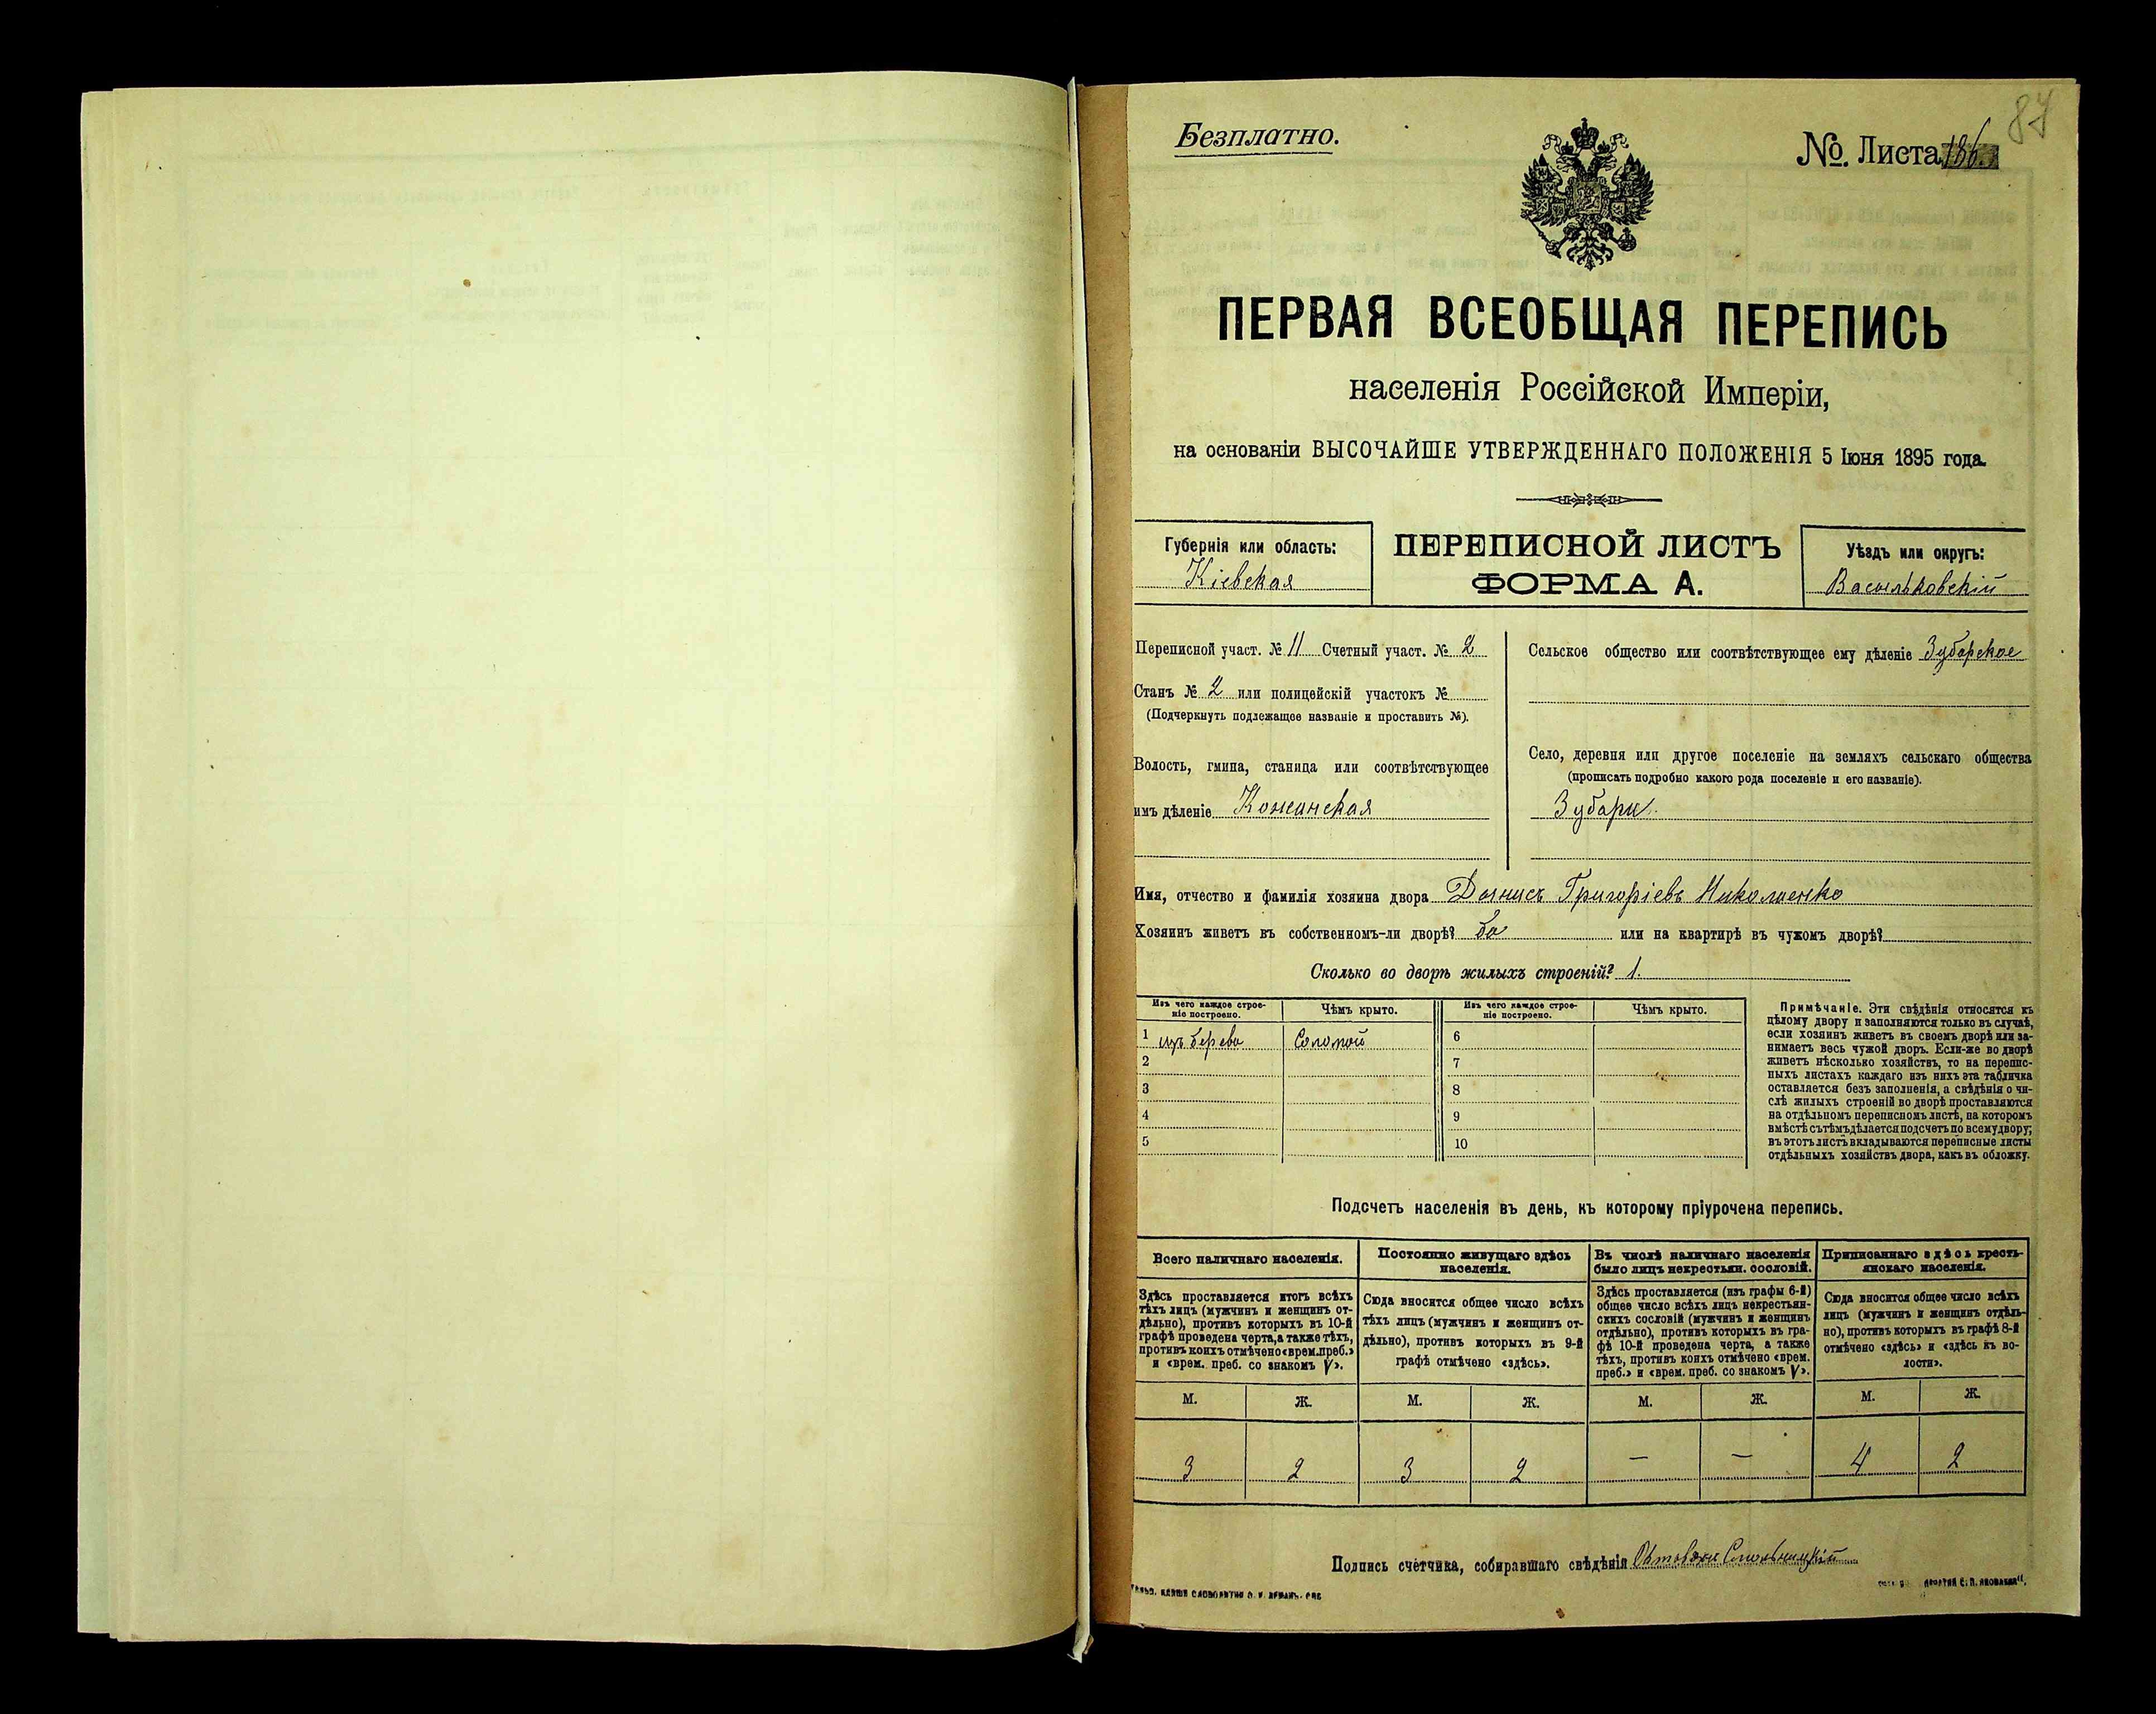 87
Безплатно.
№ Листа 186.
ПЕРВАЯ ВСЕОБЩАЯ ПЕРЕПИСЬ
населенія Россійской Имперіи,
на основаніи ВЫСОЧАЙШЕ УТВЕРЖДЕННАГО ПОЛОЖЕНІЯ 5 Іюня 1895 года.
Губернія или область:
Кіевская
ПЕРЕПИСНОЙ ЛИСТЪ
ФОРМА А.
Уѣздъ или округъ:
Васильковскій
Переписной участ. № 11 Счетный участ. № 2
Станъ № 2 или полицейскій участокъ №
(Подчеркнуть подлежащее названіе и проставить №).
Волость, гмина, станица или соотвѣтствующее
имъ дѣленіе Кожанская
Сельское общество или соотвѣтствующее ему дѣленіе Зубарское
Село, деревня или другое поселеніе на земляхъ сельскаго общества
(прописать подробно какого рода поселеніе и его названіе).
Зубари.
Имя, отчество и фамилія хозяина двора Григоріевъ Николаенко
Хозяинъ живетъ въ собственномъ-ли дворѣ? да или на квартирѣ въ чужомъ дворѣ?
Сколько во дворѣ жилыхъ строеній? 1.
Изъ чего каждое строе-
ніе построено.
Чѣмъ крыто.
Изъ чего каждое строе-
ніе построено.
Чѣмъ крыто.
1 изъ дерева Соломой 6
2 7
3 8
4 9
5 10
Примѣчаніе. Эти свѣдѣнія относятся къ
цѣлому двору и заполняются только въ случаѣ,
если хозяинъ живетъ въ своемъ дворѣ или за-
нимаетъ весь чужой дворъ. Если-же во дворѣ
живетъ нѣсколько хозяйствъ, то на перепис-
ныхъ листахъ каждаго изъ нихъ эта табличка
оставляется безъ заполненія, а свѣдѣнія о чи-
слѣ жилыхъ строеній во дворѣ проставляются
на отдѣльномъ переписномъ листѣ, на которомъ
вмѣстѣ съ тѣмъ дѣлается подсчетъ по всему двору;
въ этотъ листъ вкладываются переписные листы
отдѣльныхъ хозяйствъ двора, какъ въ обложку.
Подсчетъ населенія въ день, къ которому пріурочена перепись.
Всего наличнаго населенія.
Здѣсь проставляется итогъ всѣхъ
тѣхъ лицъ (мужчинъ и женщинъ от-
дѣльно), противъ которыхъ въ 10-й
графѣ проведена черта, а также тѣхъ,
противъ коихъ отмѣчено «врем. преб.»
и «врем. преб. со знакомъ V».
Постоянно живущаго здѣсь
населенія.
Сюда вносится общее число всѣхъ
тѣхъ лицъ (мужчинъ и женщинъ от-
дѣльно), противъ которыхъ въ 9-й
графѣ отмѣчено «здѣсь».
Въ числѣ наличнаго населенія
было лицъ некрестьян. сословій.
Здѣсь проставляется (изъ графы 6-й)
общее число всѣхъ лицъ некрестьян-
скихъ сословій (мужчинъ и женщинъ
отдѣльно), противъ которыхъ въ гра-
фѣ 10-й проведена черта, а также
тѣхъ, противъ коихъ отмѣчено «врем.
преб.» и «врем. преб. со знакомъ V».
Приписаннаго здѣсь кресть-
янскаго населенія.
Сюда вносится общее число всѣхъ
лицъ (мужчинъ и женщинъ отдѣль-
но), противъ которыхъ въ графѣ 8-й
отмѣчено «здѣсь» и «здѣсь къ во-
лости».
М. Ж. М. Ж. М. Ж. М. Ж.
3 2 3 2 — — 4 2
Подпись счетчика, собиравшаго свѣдѣнія